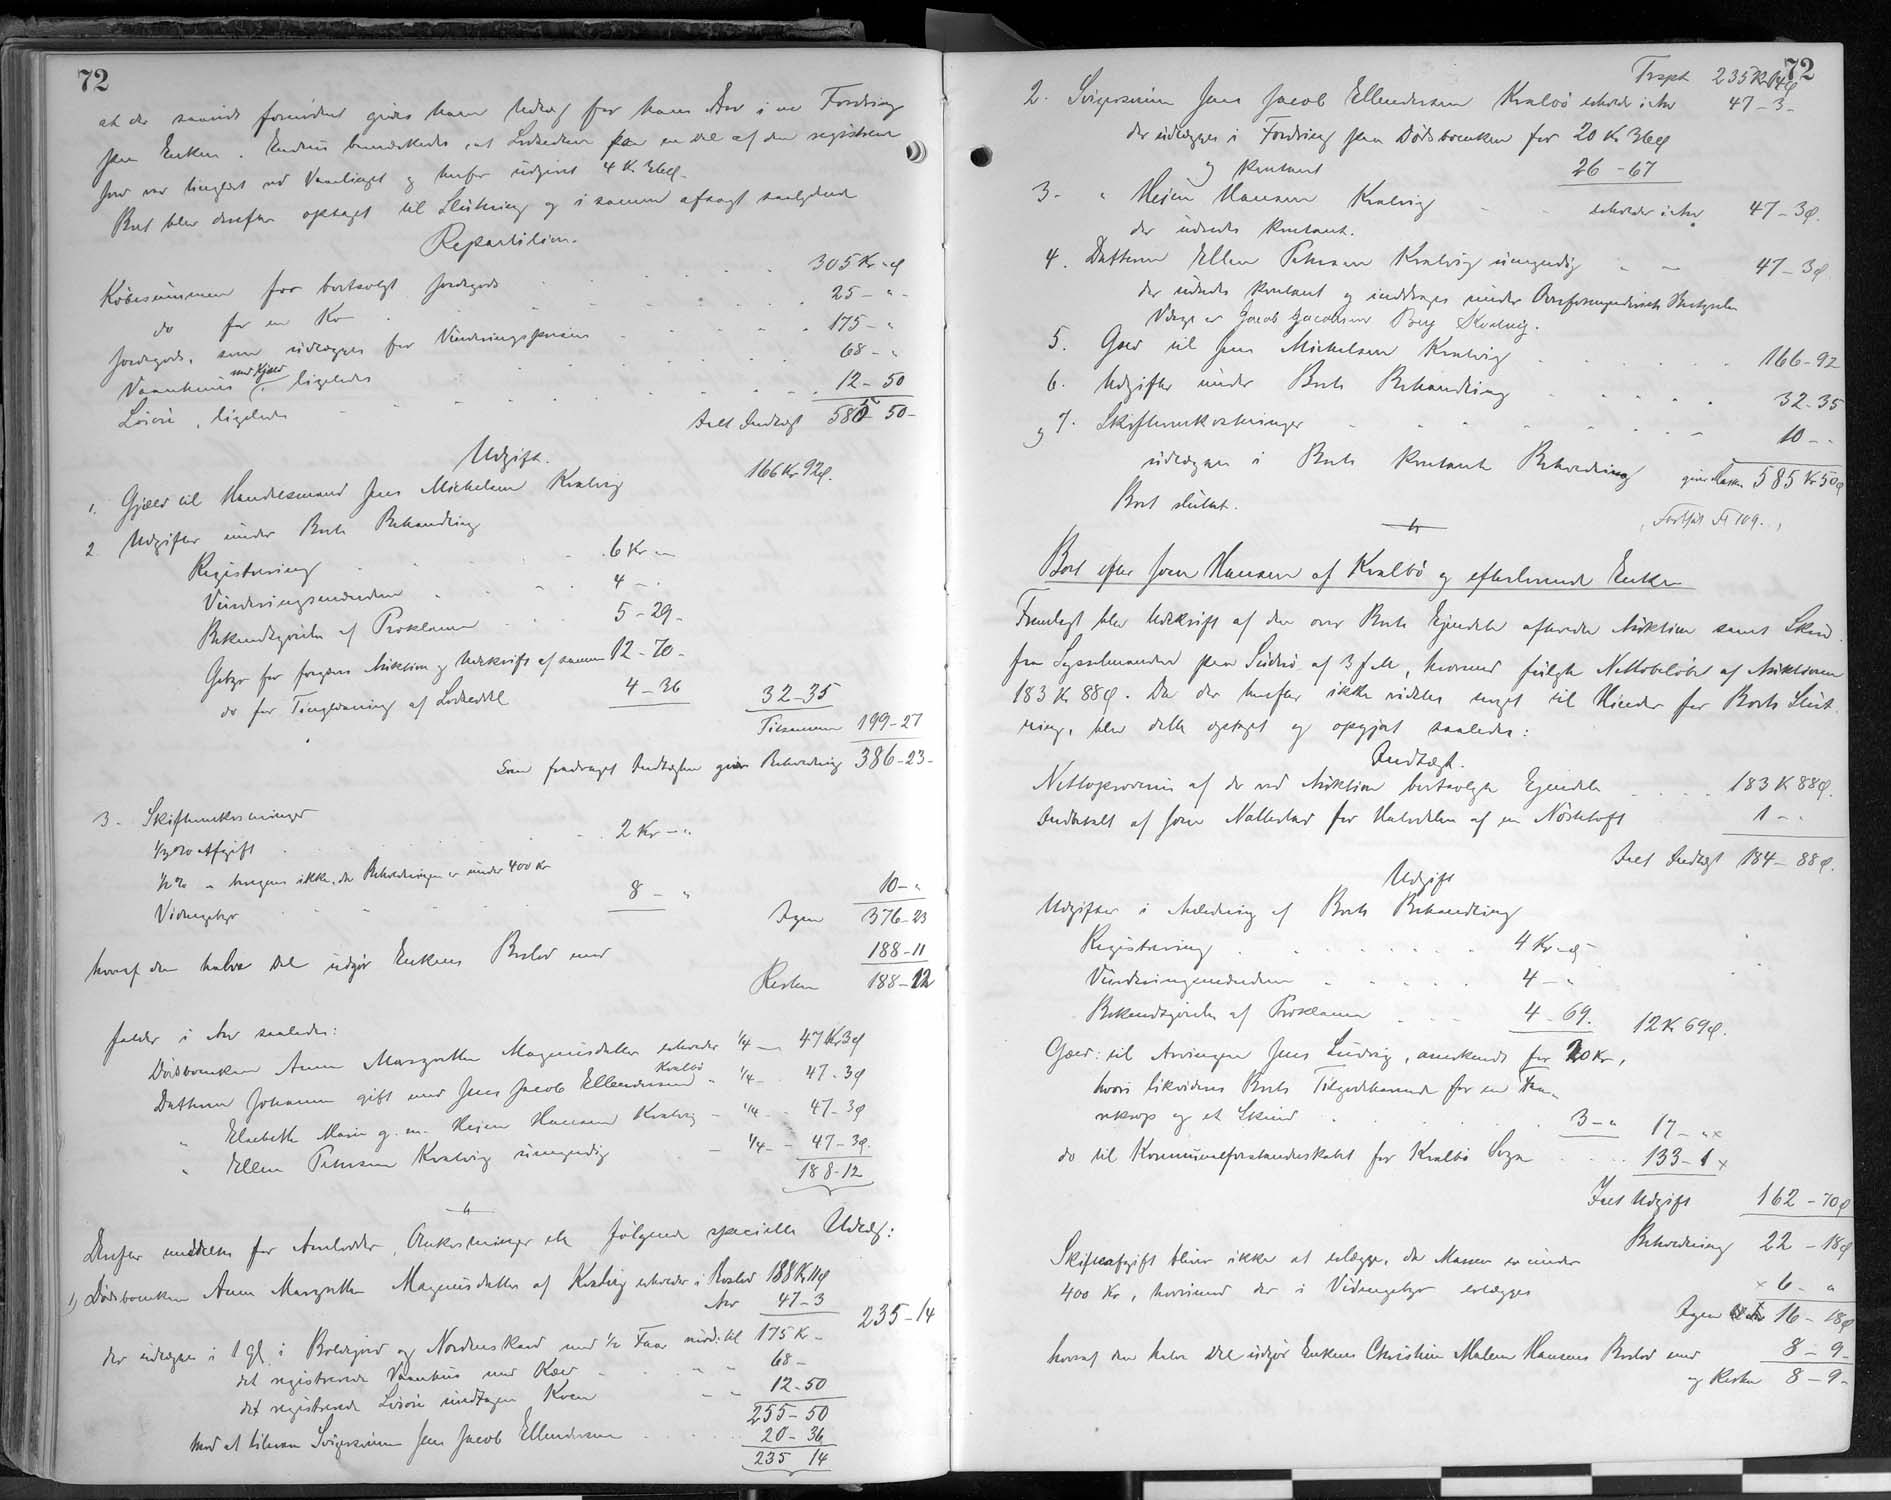 72
at der saavidt fornödent gives ham Udlæg for hans Arv i en Fordring
paa Enken. Endnu bemærkedes, at Lodsedlen paa en Del af den registrerede
Jord var tinglæst ved Vaartinget og herfor udgivet 4 Kr. 36 Ø.
Boet blev derefter optaget til Slutning og i samme afsagt saalydende
Repartition.
Købesummen for bortsolgt Jordegods 305 Kr - Ø
do for en Ko 25 - "
Jordegods, som udlægges for Vurderingsprisen 175 - "
Vaanehuus med Kjæld., ligeledes 68 - "
Lösöre, ligeledes 12 - 50
Ialt Indtægt 585 50 -
Udgift.
1. Gjæld til Handelsmand Jens Michelsen Kvalvig 166 Kr 92 Ø.
2 Udgifter under Boets Behandling
Registrering 6 Kr -
Vurderingsmændene 4 - .
Bekendtgörelse af Proklama 5 - 29 -
Gebyr for forgæves Auktion og Udskrift af samme 12 - 70 -
do for Tinglæsning af Lodseddel 4 - 36
32 - 35
Tilsammen 199 - 27
Som fradraget Indtægten giver Beholdning 386 - 23 -
3 - Skifteomkostninger
1/3 % Afgift 2 Kr - "
1/2 % " beregnes ikke, da Beholdningen er under 400 Kr
Vidnegebyr 8 - "
10 - "
Igen 376 - 23
hvoraf den halve Del udgjör Enkens Boslod med 188 - 11
Resten 188 - 12
falder i Arv saaledes:
Dödsboenken Anna Margretha Magnusdatter erholder 1/4 - 47 Kr 3 Ø
Datteren Johanne gift med Jens Jacob Ellendersen Kvalbö " 1/4 - 47 - 3 Ø
" Elsebeth Marie g. m. Hejne Hansen Kvalvig - 1/4 - 47 - 3 Ø
" Ellen Petersen Kvalvig umyndig - 1/4 - 47 - 3 Ø.
188 - 12
Derefter meddeltes for Arvelodder, Omkostninger etc følgende specielle Udlæg:
1) Dödsboenken Anna Margretha Magnusdatter af Kvalvig erholder i Boslod 188 Kr 11 Ø
Arv 47 - 3
235 - 14
der udlægges i 1 Gl. i Boldegjord og Nordenskard med 1/2 Faar vurd. til 175 Kr -
det registrerede Vaanhus med Kær - - 68 -
det registrerede Lösöre undtagen Koen - - 12 - 50
255 - 50
Mod at tilsvare Svigersönnen Jens Jacob Ellendersen 20 - 36
235 14
72
Trspt 235 Kr 14 Ø
2. Svigersönnen Jens Jacob Ellendersen Kvalbö erholder i Arv 47 - 3 -
der udlægges i Fordring paa Dödsboenken for 20 Kr 36 Ø
og kontant 26 - 67
3 - " Hejne Hansen Kvalvig - - erholder i Arv 47 - 3 Ø.
der udredes kontant.
4. Datteren Ellen Petersen Kvalvig umyndig - - 47 - 3 Ø
der udredes kontant og inddrages under Overformynderiets Bestyrelse
Værge er Jacob Jacobsen Borg Kvalvig.
5. Gæld til Jens Michelsen Kvalvig 166 - 92
6. Udgifter under Boets Behandling 32 - 35
og 7. Skifteomkostninger 10 - -
udlægges i Boets kontante Beholdning giver Massen 585 Kr 50 Ø
Boet sluttet.
(Fortsat Fl 109.)
Boet efter Joen Hansen af Kvalbö og efterlevende Enke
Fremlagt blev Udskrift af den over Boets Ejendele afholdte Auktion samt Skriv.
fra Sysselmanden paa Suderö af 3 ds., hvormed fulgte Nettobeløbet af Auktionen
183 Kr 88 Ø. Da der herefter ikke vidstes noget til Hinder for Boets Slut-
ning, blev dette optaget og opgjort saaledes:
Indtægt.
Nettoprovenu af de ved Auktion bortsolgte Ejendele 183 Kr 88 Ø.
Indbetalt af Joen Nattestad for Halvdelen af en Nöstetoft 1 - -
Ialt Indtægt 184 - 88 Ø.
Udgift
Udgifter i Anledning af Boets Behandling
Registrering 4 Kr - Ø -
Vurderingsmændene 4 - "
Bekendtgjörelse af Proklama 4 - 69. 12 Kr 69 Ø.
Gæld: til Arvingen Jens Ludvig, anerkendt for 20 Kr,
hvori likvideres Boets Tilgodehavende for en
krop og et Skind 3 - " 17 - " x
do til Kommuneforstanderskabet for Kvalbö Sogn 133 - 1 x
Ialt Udgift 162 - 70 Ø
Beholdning 22 - 18 Ø
Skifteafgift bliver ikke at erlægge, da Massen er under
400 Kr, hvorimod der i Vidnegebyr erlægges x 6 - "
Igen 16 - 18 Ø
hvoraf den halve Del udgör Enkens Christine Malene Hansens Boslod med 8 - 9 -
og Resten 8 - 9 -